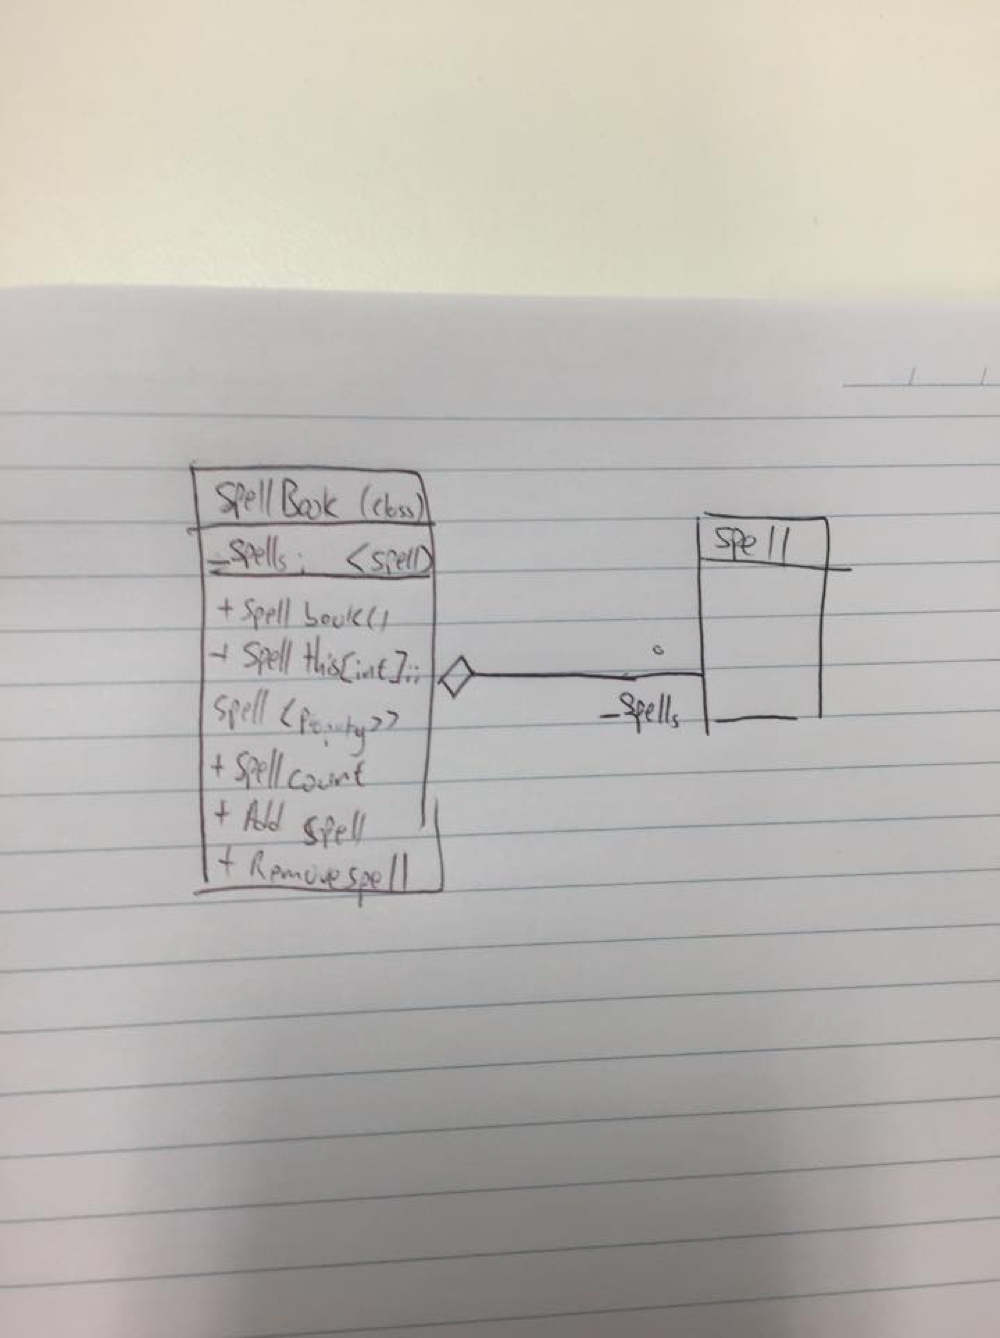 Spell Book (class)
- Spells : <spell>
+ Spell book()
+ Spell this[int]::
Spell <
+ Spell count
+ Add spell
+ Remove spell
spell
- Spells